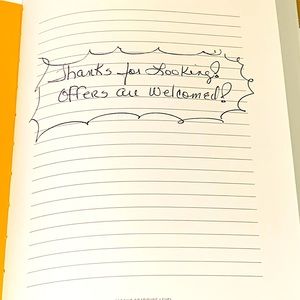 Thanks for Looking!
Offers are Welcomed!